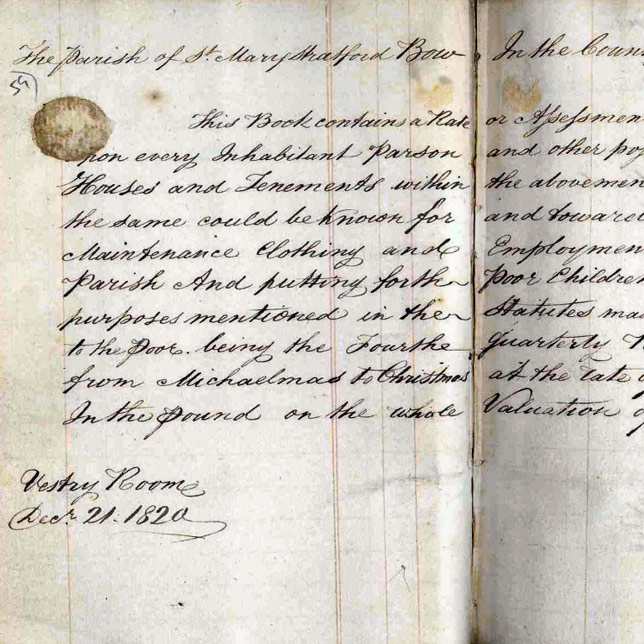 The Parish of St. Mary Stratford Bow In the Coun
59)
This Book contains a Rate or Assessmen
pon every Inhabitant Parson and other po
Houses and Tenements within the abovemen
the same could be known for and toward
Maintenance Clothing and Employmen
Parish And putting forth Poor Children
purposes mentioned in the Statutes ma
to the Poor. being the Fourthe quarterly
from Michaelmas to Christmas at the late
In the Pound on the whole Valuation o
Vestry Room
Decr. 21. 1820